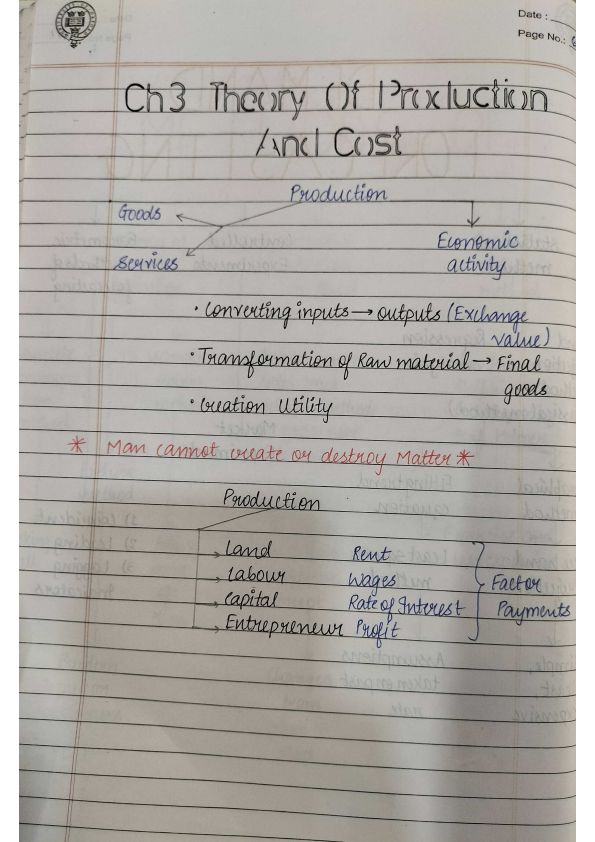 Date :
Page No.:
Ch 3 Theory Of Production
And Cost
Production
Goods
Services
Economic
activity
• Converting inputs → outputs (Exchange
value)
• Transformation of Raw material → Final
goods
• Creation Utility
* Man cannot create or destroy Matter *
Production
→ Land Rent
→ Labour Wages
→ Capital Rate of Interest
→ Entrepreneur Profit
Factor
Payments